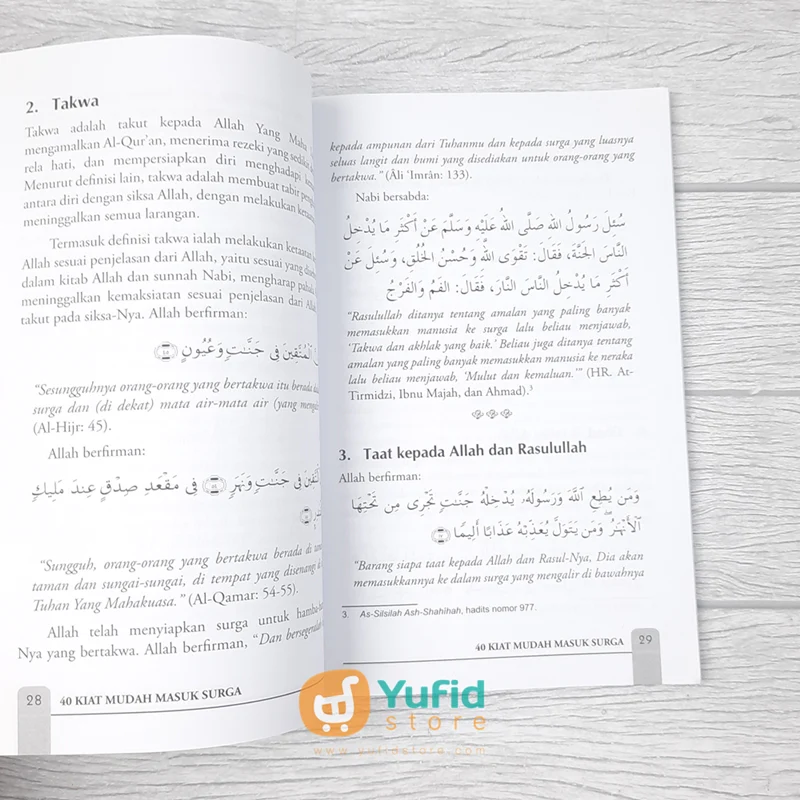 2. Takwa
Takwa adalah takut kepada Allah Yang Maha
mengamalkan Al-Qur'an, menerima rezeki yang sedikit
rela hati, dan mempersiapkan diri menghadapi
Menurut definisi lain, takwa adalah membuat tabir
antara diri dengan siksa Allah, dengan melakukan
meninggalkan semua larangan.
Termasuk definisi takwa ialah melakukan ketaatan
Allah sesuai penjelasan dari Allah, yaitu sesuai yang
dalam kitab Allah dan sunnah Nabi, mengharap
meninggalkan kemaksiatan sesuai penjelasan dari
takut pada siksa-Nya. Allah berfirman:
الْمُتَّقِينَ فِي جَنَّاتٍ وَعُيُونٍ
"Sesungguhnya orang-orang yang bertakwa itu berada
surga dan (di dekat) mata air-mata air (yang
(Al-Hijr: 45).
Allah berfirman:
فِي جَنَّاتٍ وَنَهَرٍ ﴿٥٤﴾ فِي مَقْعَدِ صِدْقٍ عِندَ مَلِيكٍ
"Sungguh, orang-orang yang bertakwa berada di
taman dan sungai-sungai, di tempat yang disenangi di
Tuhan Yang Mahakuasa." (Al-Qamar: 54-55).
Allah telah menyiapkan surga untuk
Nya yang bertakwa. Allah berfirman, "Dan
28 40 KIAT MUDAH MASUK SURGA
kepada ampunan dari Tuhanmu dan kepada surga yang luasnya
seluas langit dan bumi yang disediakan untuk orang-orang yang
bertakwa." (Âli 'Imrân: 133).
Nabi bersabda:
سُئِلَ رَسُولُ اللهِ صَلَّى اللهُ عَلَيْهِ وَسَلَّمَ عَنْ أَكْثَرِ مَا يُدْخِلُ
النَّاسَ الْجَنَّةَ، فَقَالَ: تَقْوَى اللهِ وَحُسْنُ الْخُلُقِ، وَسُئِلَ عَنْ
أَكْثَرِ مَا يُدْخِلُ النَّاسَ النَّارَ، فَقَالَ: الْفَمُ وَالْفَرْجُ
"Rasulullah ditanya tentang amalan yang paling banyak
memasukkan manusia ke surga lalu beliau menjawab,
'Takwa dan akhlak yang baik.' Beliau juga ditanya tentang
amalan yang paling banyak memasukkan manusia ke neraka
lalu beliau menjawab, 'Mulut dan kemaluan.'" (HR. At-
Tirmidzi, Ibnu Majah, dan Ahmad).³
3. Taat kepada Allah dan Rasulullah
Allah berfirman:
وَمَن يُطِعِ اللَّهَ وَرَسُولَهُۥ يُدْخِلْهُ جَنَّاتٍ تَجْرِى مِن تَحْتِهَا
الْأَنْهَارُ ۖ وَمَن يَتَوَلَّ يُعَذِّبْهُ عَذَابًا أَلِيمًا ﴿١٧﴾
"Barang siapa taat kepada Allah dan Rasul-Nya, Dia akan
memasukkannya ke dalam surga yang mengalir di bawahnya
3. As-Silsilah Ash-Shahîhah, hadits nomor 977.
40 KIAT MUDAH MASUK SURGA 29
Yufid
store
www.yufidstore.com